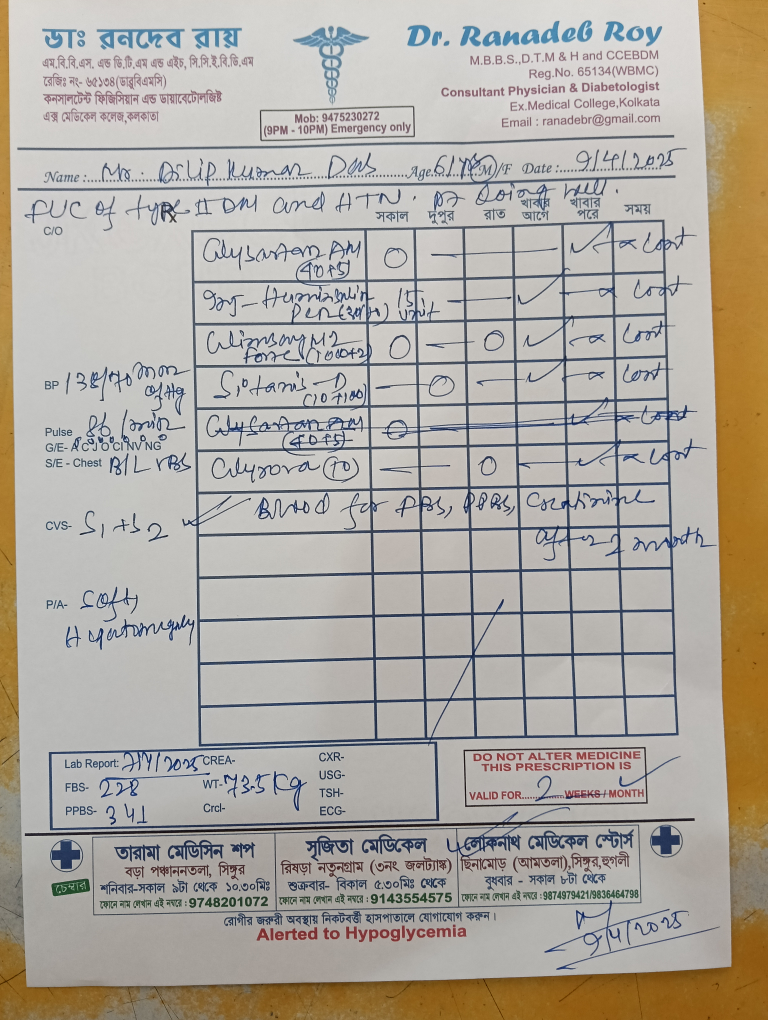 ডাঃ রনদেব রায়
এম.বি.বি.এস. এন্ড ডি.টি.এম এন্ড এইচ, সি.সি.ই.বি.ডি.এম
রেজিঃ নং- ৬৫১৩৪(ডাব্লুবিএমসি)
কনসালটেন্ট ফিজিসিয়ান এন্ড ডায়াবেটোলজিষ্ট
এক্স মেডিকেল কলেজ,কলকাতা
Mob: 9475230272
(9PM - 10PM) Emergency only
Dr. Ranadeb Roy
M.B.B.S.,D.T.M & H and CCEBDM
Reg.No. 65134(WBMC)
Consultant Physician & Diabetologist
Ex.Medical College,Kolkata
Email : ranadebr@gmail.com
Name : Mr. Dilip Kumar Das Age. M/F Date : 9/4/2025
FUC of type II DM and HTN. Pt doing well.
C/O Rx সকাল দুপুর রাত খাবার আগে খাবার পরে সময়
Glysartan AM (40+5) O — — ✓ — x Cont
Inj - Huminsulin 15 unit — ✓ — x Cont
Pen (30/70)
Glimsave M2 Forte (1000+2) O — O ✓ — x Cont
BP 138/70 mm of Hg
Sitaris-D (10+100) — O — ✓ — x Cont
Pulse 86/min
Glysartan AM (40+5) O — — ✓ — Cont
G/E- A C J O CI NV NG
S/E - Chest B/L VBS
Glyrova (10) — — O — ✓ x Cont
CVS- S1+S2
Blood for FBS, PPBS, Creatinine
after 2 month
P/A- Soft,
Hepatomegaly
Lab Report: 7/4/2025 CREA- CXR-
FBS- 228 WT- 73.5 Kg USG-
TSH-
PPBS- 341 Crcl- ECG-
DO NOT ALTER MEDICINE
THIS PRESCRIPTION IS
VALID FOR 2 WEEKS / MONTH
চেম্বার
তারামা মেডিসিন শপ
বড়া পঞ্চাননতলা, সিঙ্গুর
শনিবার-সকাল ৯টা থেকে ১০.৩০মিঃ
ফোনে নাম লেখান এই নম্বরে : 9748201072
সৃজিতা মেডিকেল
রিষড়া নতুনগ্রাম (৩নং জলট্যাঙ্ক)
শুক্রবার- বিকাল ৫.৩০মিঃ থেকে
ফোনে নাম লেখান এই নম্বরে : 9143554575
লোকনাথ মেডিকেল স্টোর্স
ছিনামোড় (আমতলা),সিঙ্গুর,হুগলী
বুধবার - সকাল ৮টা থেকে
ফোনে নাম লেখান এই নম্বরে : 9874979421/9836464798
রোগীর জরুরী অবস্থায় নিকটবর্ত্তী হাসপাতালে যোগাযোগ করুন।
Alerted to Hypoglycemia
9/4/2025